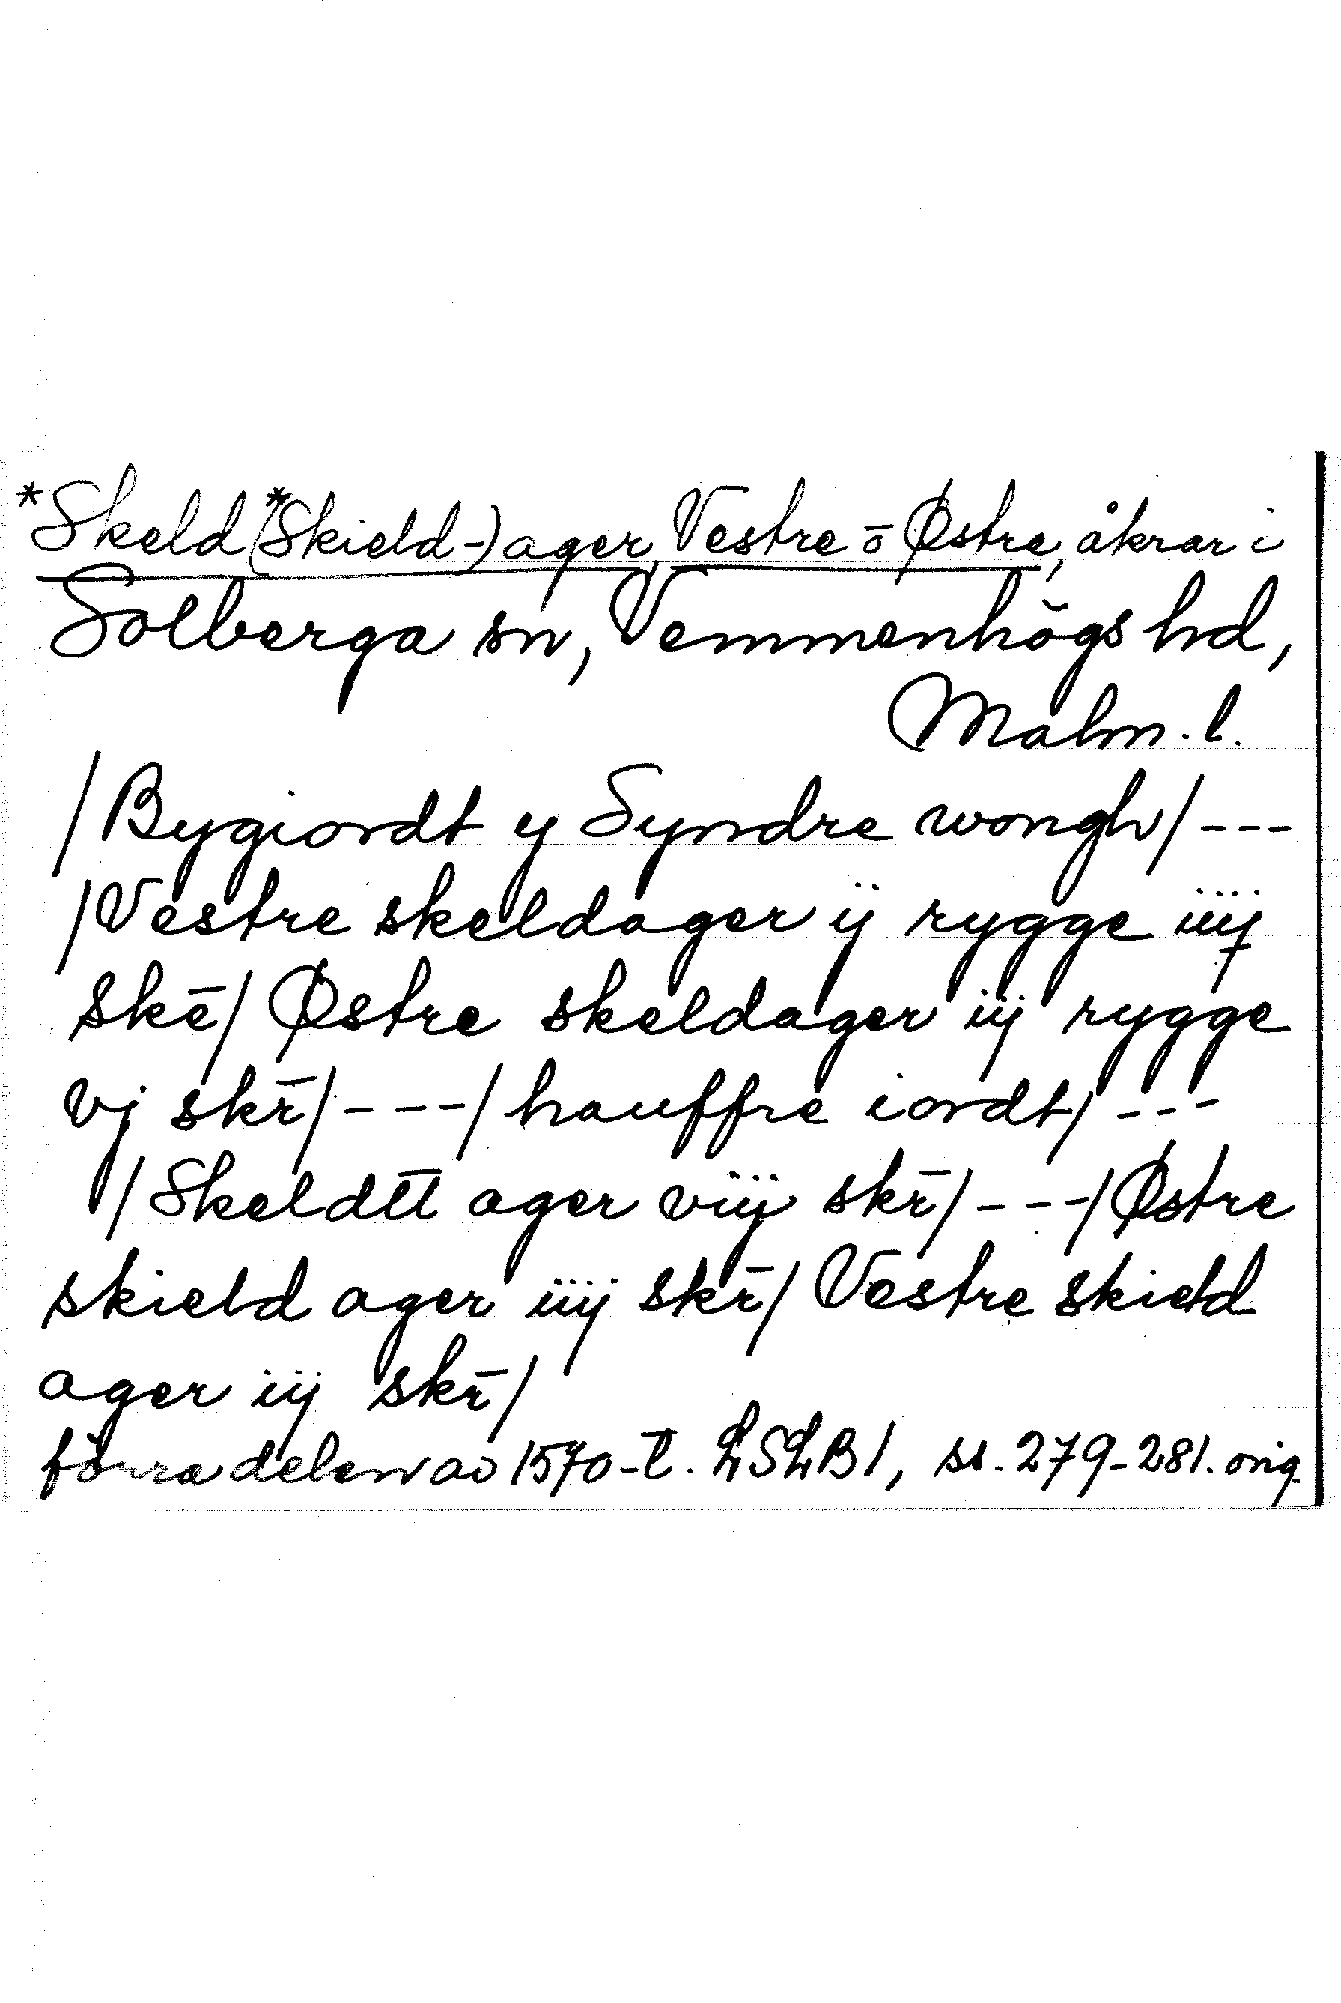 *Skeld (*Skield-) ager, Vestre o̅ Østre, åkrar i
Solberga sn, Vemmenhögs hd,
Malm. l.
/Bygiordt y Syndre wongh/ ---
/Vestre skeldager ij rygge iiij
skē/ Østre skeldager iij rygge
vj skr̄/ ---/ hauffre iordt/ ---
/Skeldtt ager viij skr̄/ ---/ Østre
skield ager iiij skr̄/ Vestre skield
ager iij skr̄/
förra delen av 1570-t. LSLB 1, ss. 279-281. orig.